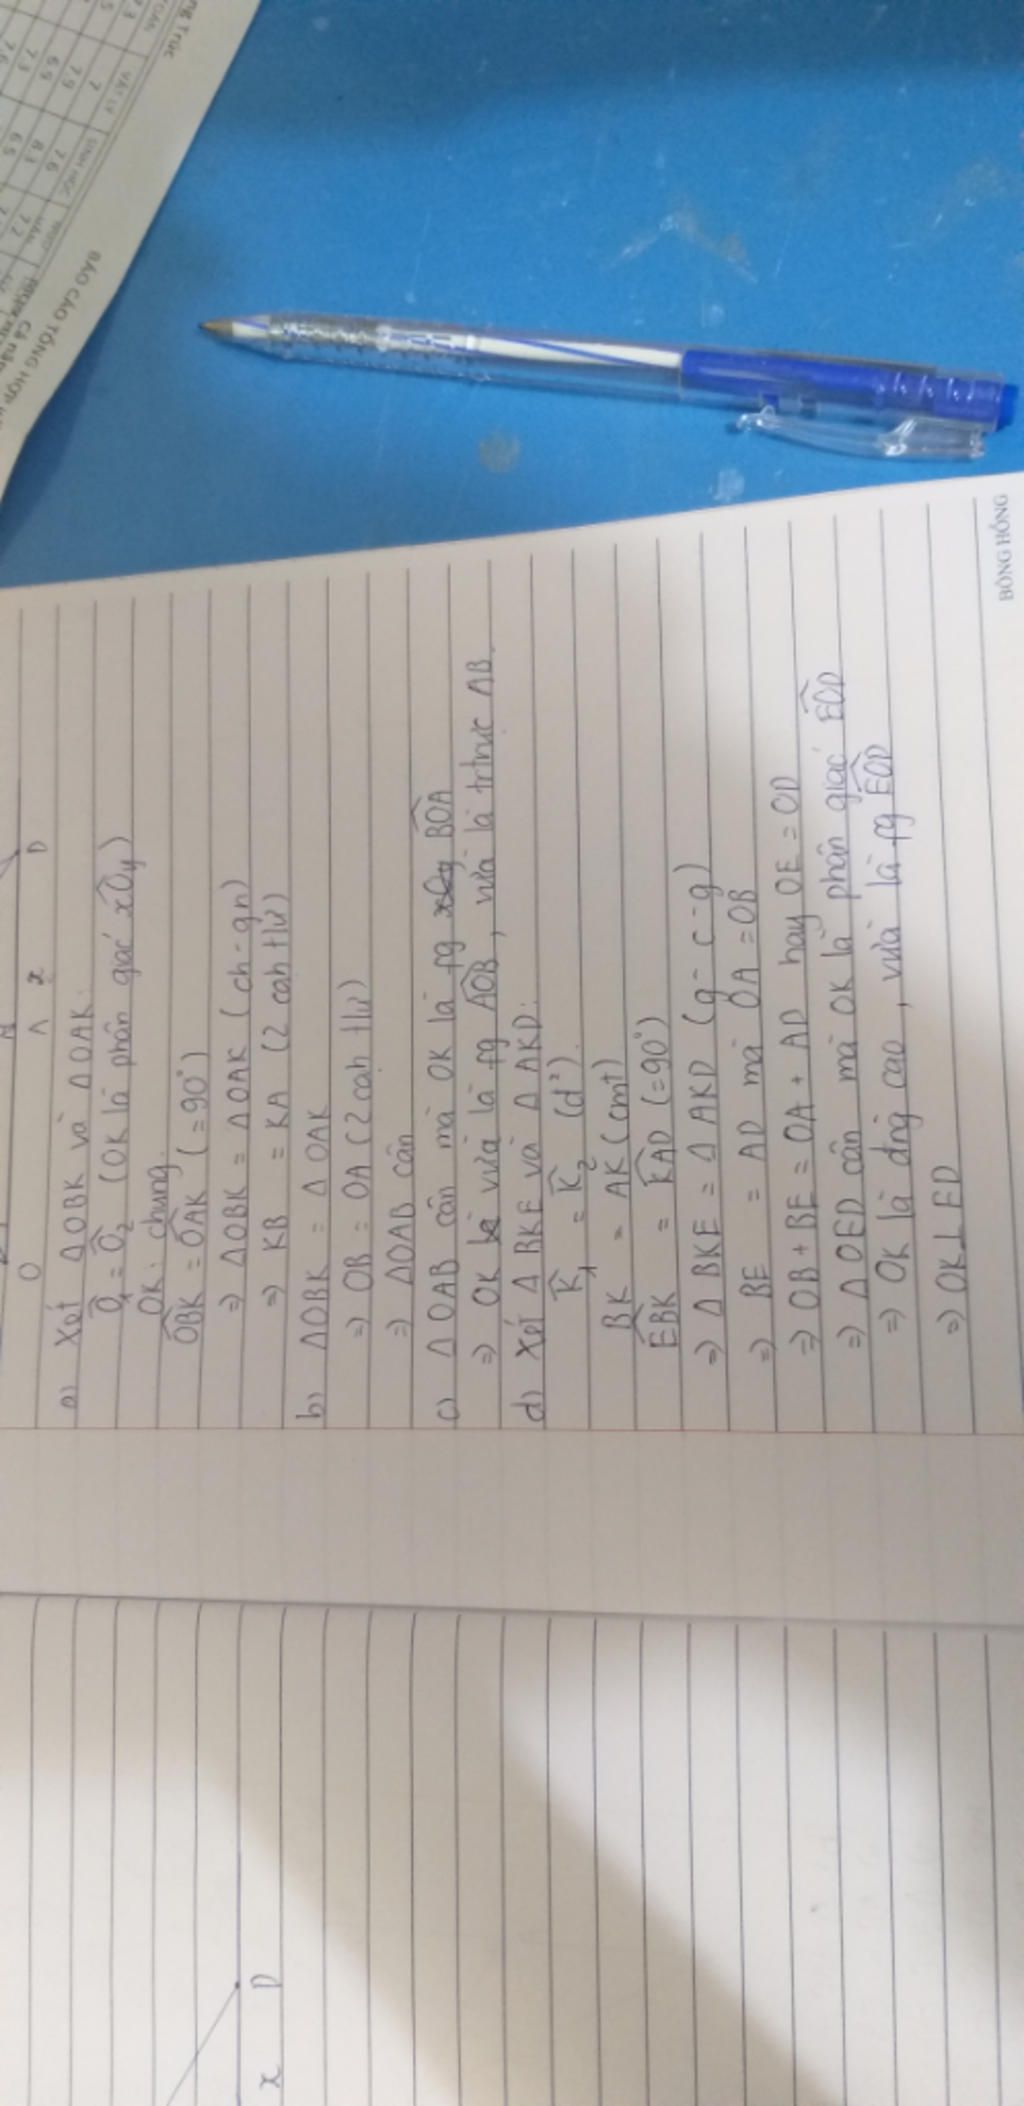 O
A
x
D
a) Xét ΔOBK và ΔOAK:
Ô₁ = Ô₂ (OK là phân giác xÔy)
OK: chung.
OBK = OAK (= 90°)
⇒ ΔOBK = ΔOAK (ch-gn)
⇒ KB = KA (2 cah tlư)
b) ΔOBK = ΔOAK
⇒ OB = OA (2 cah tlư)
⇒ ΔOAB cân
c) ΔOAB cân mà OK là pg BOA
⇒ OK vừa là pg AOB, vừa là trtrực AB.
d) Xét ΔBKE và ΔAKD:
K̂₁ = K̂₂ (đ²).
BK = AK (cmt)
EBK = KAD (= 90°)
⇒ ΔBKE = ΔAKD (g-c-g)
⇒ BE = AD mà OA = OB
⇒ OB + BE = OA + AD hay OE = OD
⇒ ΔOED cân mà OK là phân giác EOD
⇒ OK là đng cao, vừa là pg EOD
⇒ OK⊥ED
BÔNG HỒNG
x
D
BÁO CÁO TỔNG HỢP
TOÁN
VẬT LÝ
SINH HỌC
7
7.6
7.9
8.3
7.2
6.9
6.5
7.3